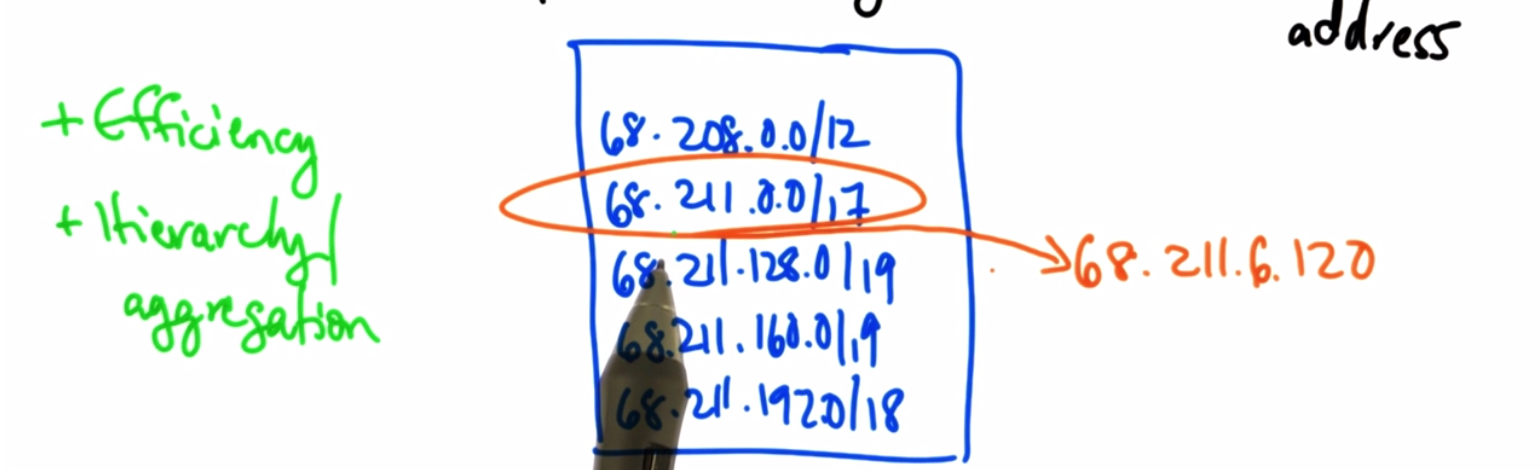 address
+ Efficiency
+ Hierarchy/
aggregation
68.208.0.0/12
68.211.0.0/17
68.211.128.0/19
68.211.160.0/19
68.211.1920/18
68.211.6.120